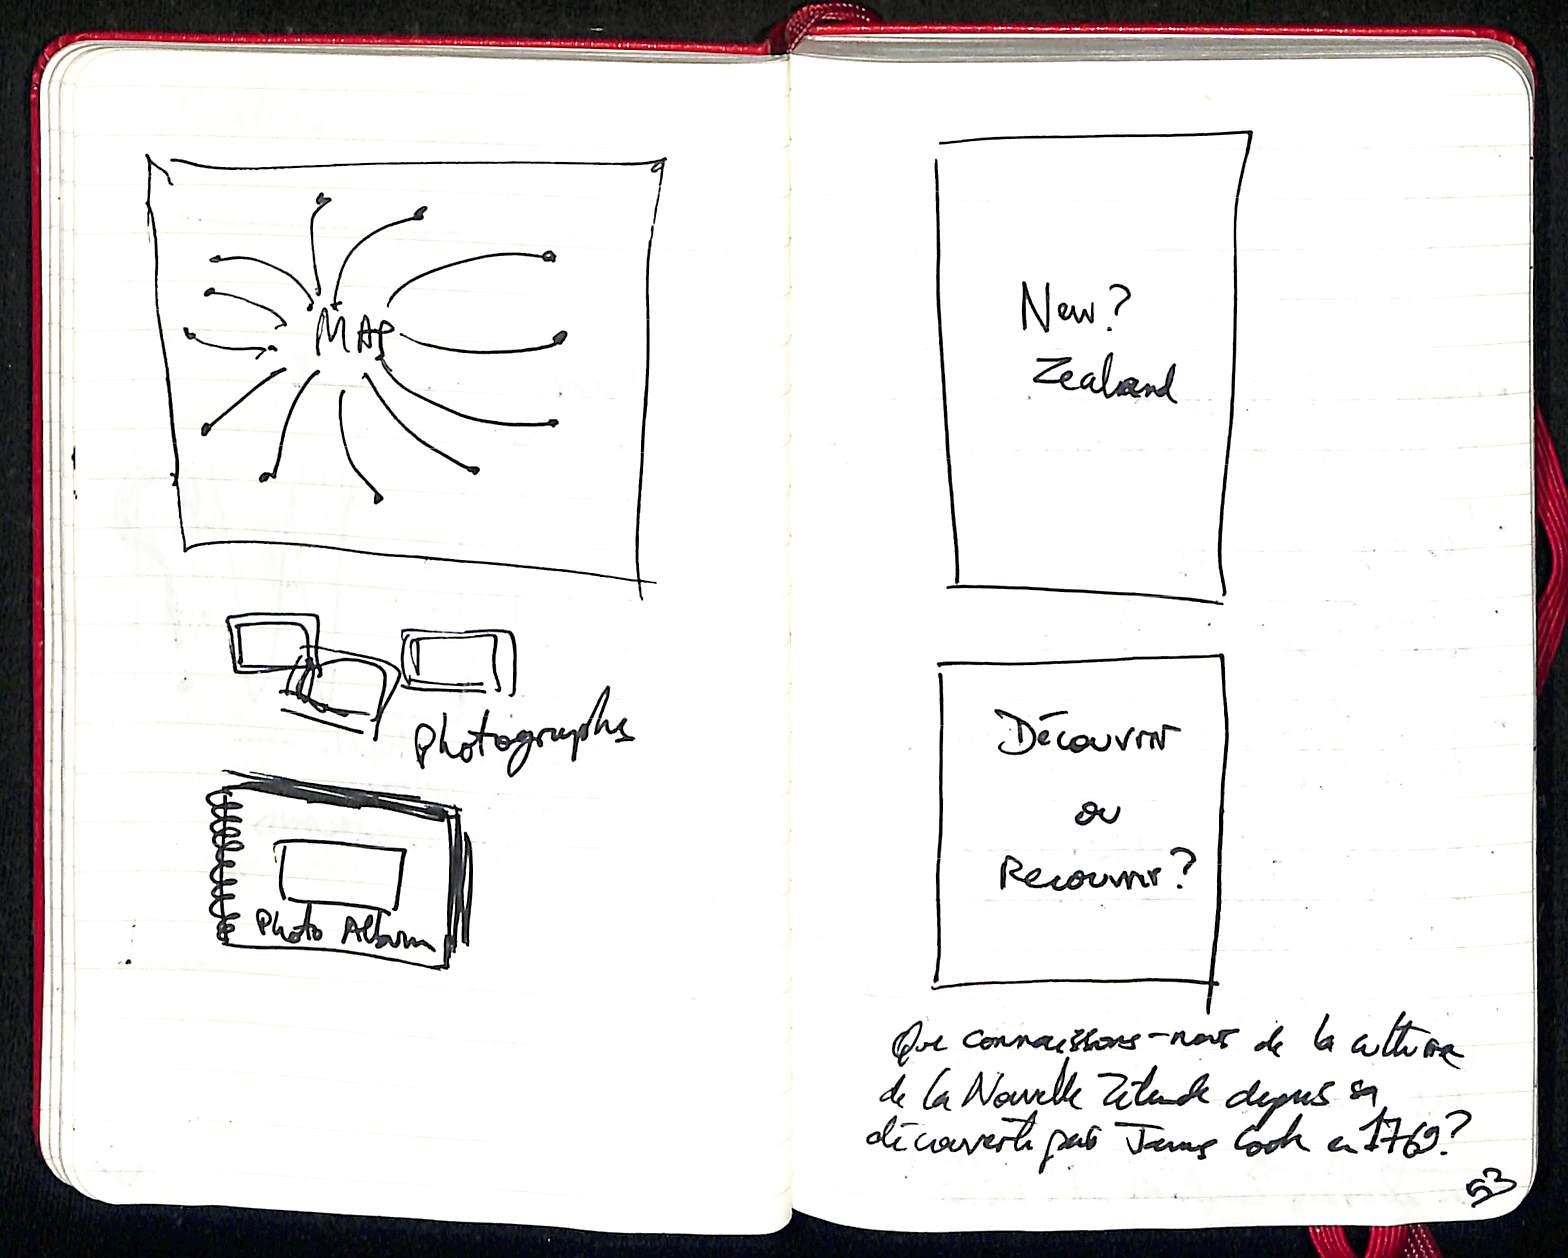 MAP
Photographs
Photo Album
New?
Zealand
Découvrir
ou
Recouvrir?
Que connaissons-nous de la culture
de la Nouvelle Zélande depuis sa
découverte par James Cook en 1769?
53